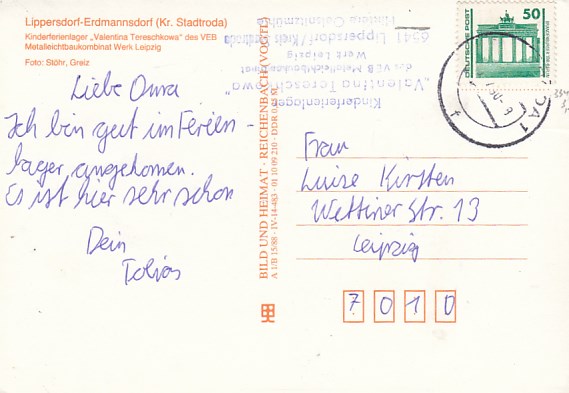 Lippersdorf-Erdmannsdorf (Kr. Stadtroda)
Kinderferienlager „Valentina Tereschkowa" des VEB
Metalleichtbaukombinat Werk Leipzig
Foto: Stöhr, Greiz
Liebe Oma
Ich bin gut im Ferien-
lager angekommen.
Es ist hier sehr schon
Dein
Tobias
BILD UND HEIMAT · REICHENBACH (VOGTL
A 1/B 15/88 · IV-14-483 · 01 10 09 210 · DDR
Kinderferienlager
„Valentina Tereschkowa"
des VEB Metalleichtbaukombinat
Werk Leipzig
6541 Lippersdorf/Kreis Stadtroda
DEUTSCHE POST
50
Frau
Luise Kirsten
Wettiner Str. 13
Leipzig
7010